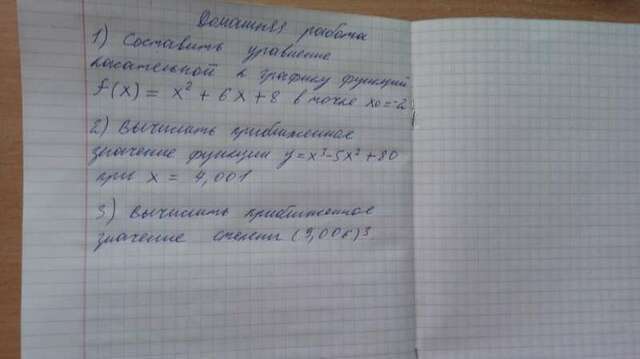 Домашняя работа
1) Составить уравнение
касательной к графику функции
f(x) = x² + 6x + 8 в точке x₀ = -2
2) Вычислить приближенное
значение функции y = x³ - 5x² + 80
при x = 4,001
3) Вычислить приближенное
значение степени